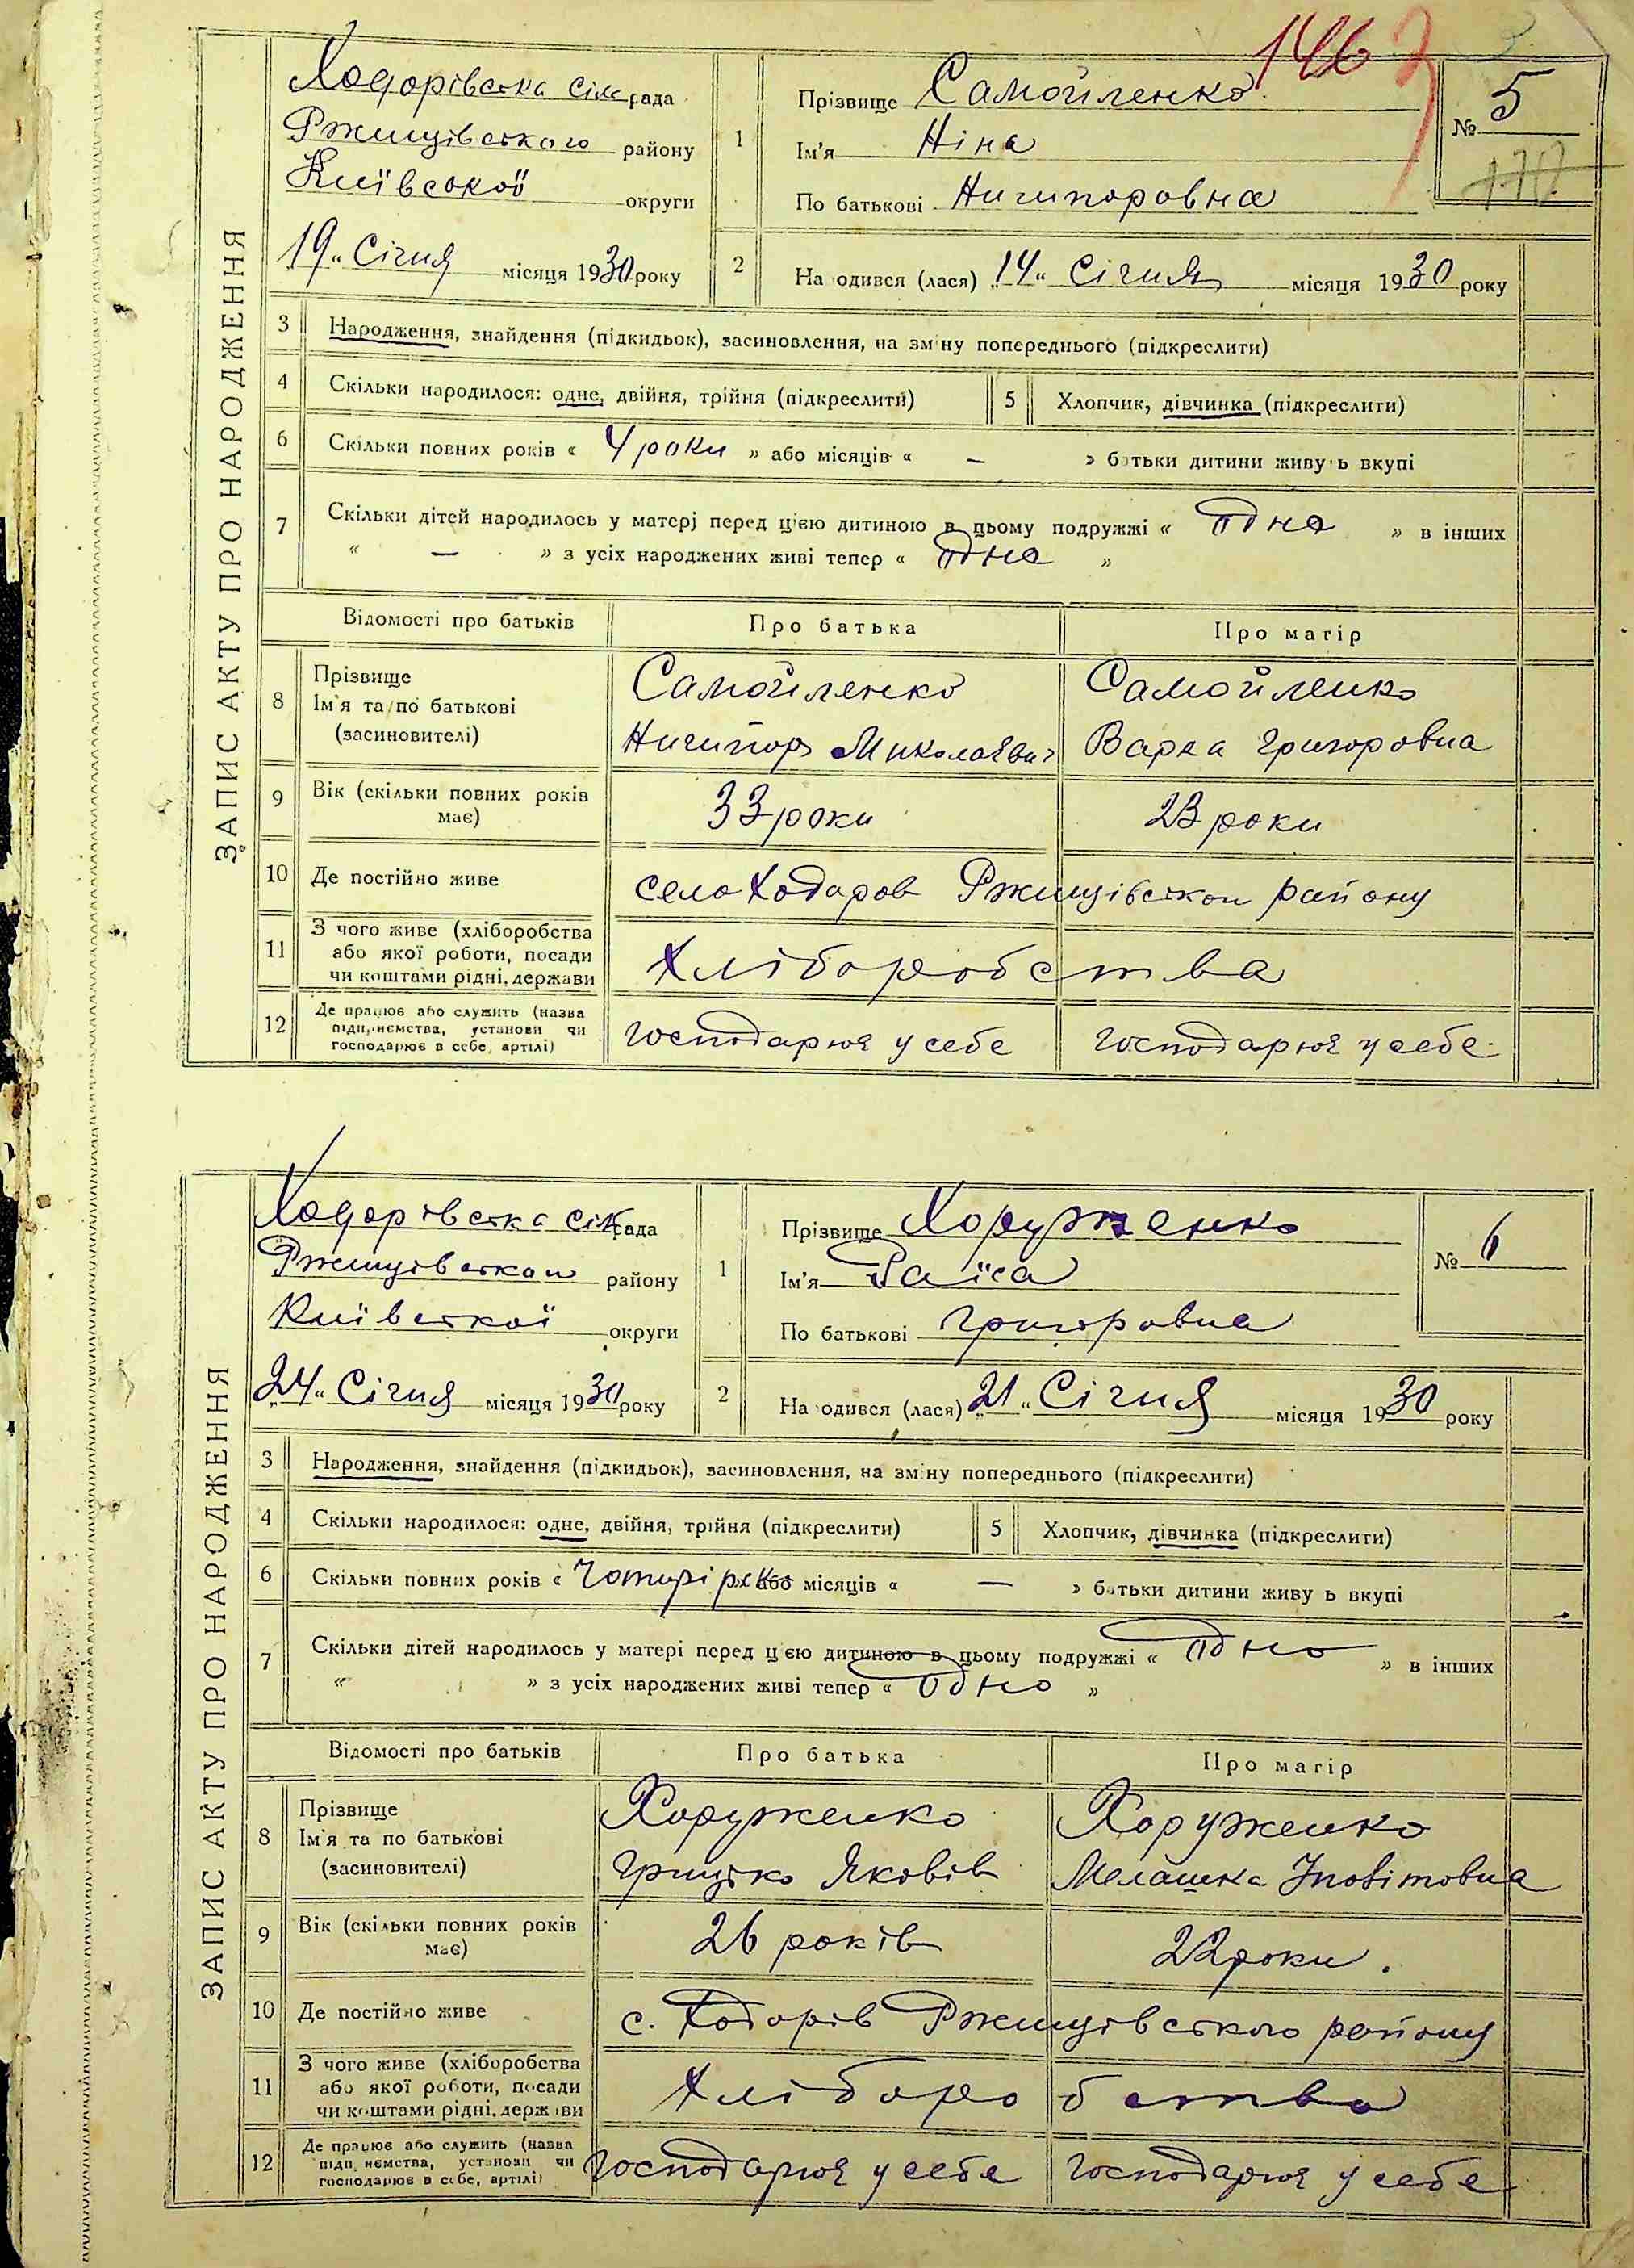 146
Ходорівска сіль рада
Ржищівського району
Київської округи
19 „ Січня місяця 1930 року
1
Прізвище Самойленко
Ім'я Ніна
По батькові Ничипоровна
№ 5
170
2
Народився (лася) „14„ Січня місяця 1930 року
ЗАПИС АКТУ ПРО НАРОДЖЕННЯ
3 Народження, знайдення (підкидьок), засиновлення, на зміну попереднього (підкреслити)
4 Скільки народилося: одне, двійня, трійня (підкреслити) 5 Хлопчик, дівчинка (підкреслити)
6 Скільки повних років « 4 роки » або місяців « — » батьки дитини живуть вкупі
7 Скільки дітей народилось у матері перед цією дитиною в цьому подружжі « одна » в інших
« — » з усіх народжених живі тепер « одна »
Відомості про батьків Про батька Про матір
8 Прізвище Ім'я та по батькові (засиновителі)
Самойленко Самойленко
Ничипор Миколаєвич Варка Григоровна
9 Вік (скільки повних років має) 33 роки 23 роки
10 Де постійно живе село Ходоров Ржищівськои району
11 З чого живе (хліборобства або якої роботи, посади чи коштами рідні, держави Хліборобства
12 Де працює або служить (назва підприємства, установи чи господарює в себе, артілі) господарює у себе господарює у себе
Ходорівска сіль рада
Ржищівськои району
Київської округи
„24„ Січня місяця 1930 року
1
Прізвище Хоруженко
Ім'я Раїса
По батькові Григоровна
№ 6
2
Народився (лася) „21„ Січня місяця 1930 року
ЗАПИС АКТУ ПРО НАРОДЖЕННЯ
3 Народження, знайдення (підкидьок), засиновлення, на зміну попереднього (підкреслити)
4 Скільки народилося: одне, двійня, трійня (підкреслити) 5 Хлопчик, дівчинка (підкреслити)
6 Скільки повних років « Чотирі рок або місяців « — » батьки дитини живуть вкупі
7 Скільки дітей народилось у матері перед цією дитиною в цьому подружжі « одно » в інших
« » з усіх народжених живі тепер « одно »
Відомості про батьків Про батька Про матір
8 Прізвище Ім'я та по батькові (засиновителі)
Хоруженко Хоруженко
Грицько Яковів Мелашка Іповітовна
9 Вік (скільки повних років має) 26 років 22 роки.
10 Де постійно живе с. Ходорів Ржищівського району
11 З чого живе (хліборобства або якої роботи, посади чи коштами рідні, держави Хліборобства
12 Де працює або служить (назва підприємства, установи чи господарює в себе, артілі) господарює у себе господарює у себе